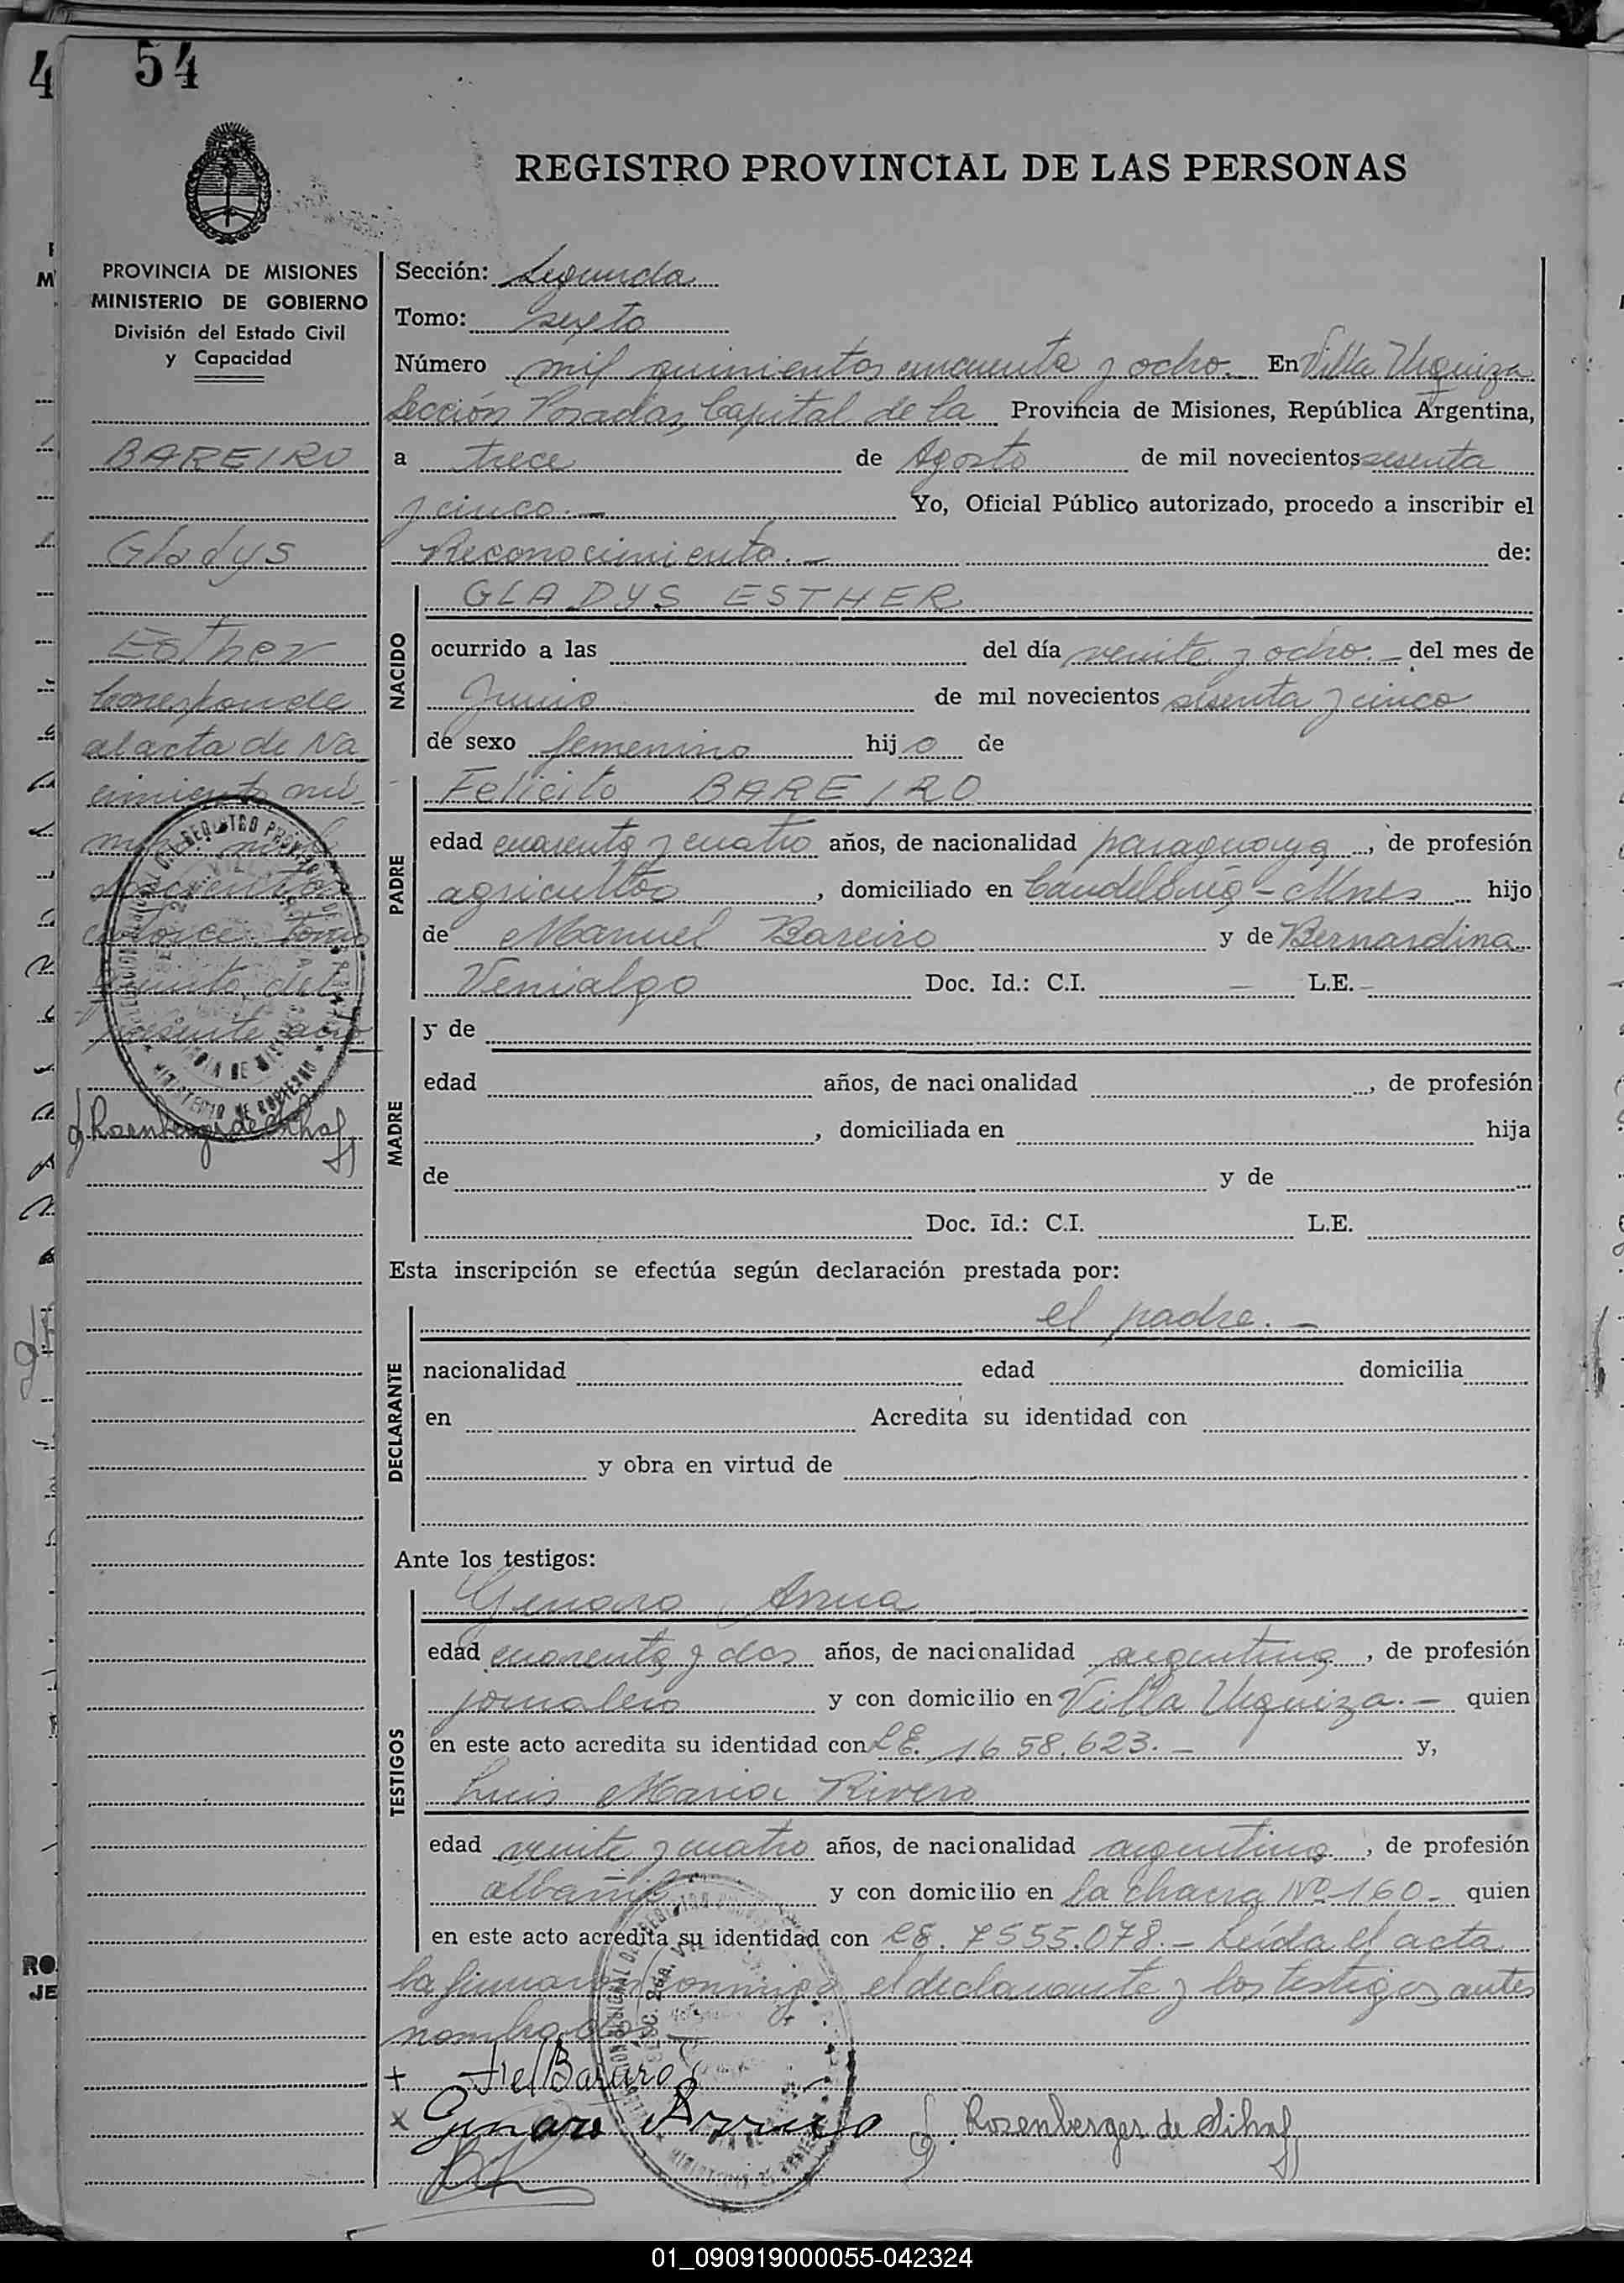 54
REGISTRO PROVINCIAL DE LAS PERSONAS
PROVINCIA DE MISIONES
MINISTERIO DE GOBIERNO
División del Estado Civil
y Capacidad
BAREIRO
Gladys
Esther
Corresponde
al acta de Na
cimiento nú-
mero mil
catorce Tomo
quinto del
presente año
J. Rosenberger de Sihaf
Sección: Segunda
Tomo: sexto
Número mil quinientos cincuenta y ocho. En Villa Urquiza
Sección Posadas, Capital de la Provincia de Misiones, República Argentina,
a trece de Agosto de mil novecientos sesenta
y cinco.- Yo, Oficial Público autorizado, procedo a inscribir el
Reconocimiento.- de:
NACIDO
GLADYS ESTHER
ocurrido a las del día veinte y ocho.- del mes de
Junio de mil novecientos sesenta y cinco
de sexo femenino hijo de
PADRE
Felicito BAREIRO
edad cuarenta y cuatro años, de nacionalidad paraguaya, de profesión
agricultor, domiciliado en Candelaria - Mnes hijo
de Manuel Bareiro y de Bernardina
Venialgo Doc. Id.: C.I. - L.E. -
MADRE
y de
edad años, de nacionalidad , de profesión
, domiciliada en hija
de y de
Doc. Id.: C.I. L.E.
Esta inscripción se efectúa según declaración prestada por:
DECLARANTE
el padre.-
nacionalidad edad domicilia
en Acredita su identidad con
y obra en virtud de
Ante los testigos:
TESTIGOS
Genaro
edad cuarenta y dos años, de nacionalidad argentina, de profesión
jornalero y con domicilio en Villa Urquiza.- quien
en este acto acredita su identidad con L.E. 1658.623.- y,
Luis Maria Rivero
edad veinte y cuatro años, de nacionalidad argentina, de profesión
albañil y con domicilio en la chacra Nº 160- quien
en este acto acredita su identidad con L.E. 7555.078.- Leída el acta
la firmaron conmigo el declarante y los testigos antes
nombrados
+ Bareiro
x Genaro
J. Rosenberger de Sihaf
01_090919000055-042324